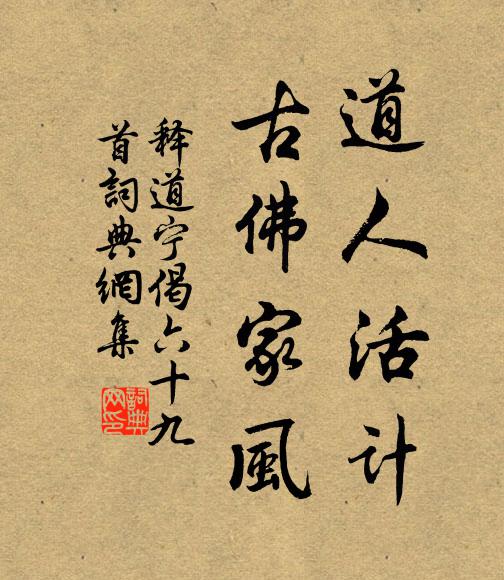 道人活计
古佛家風
释道宁偈六十九
首詞典網集
詞典
网印